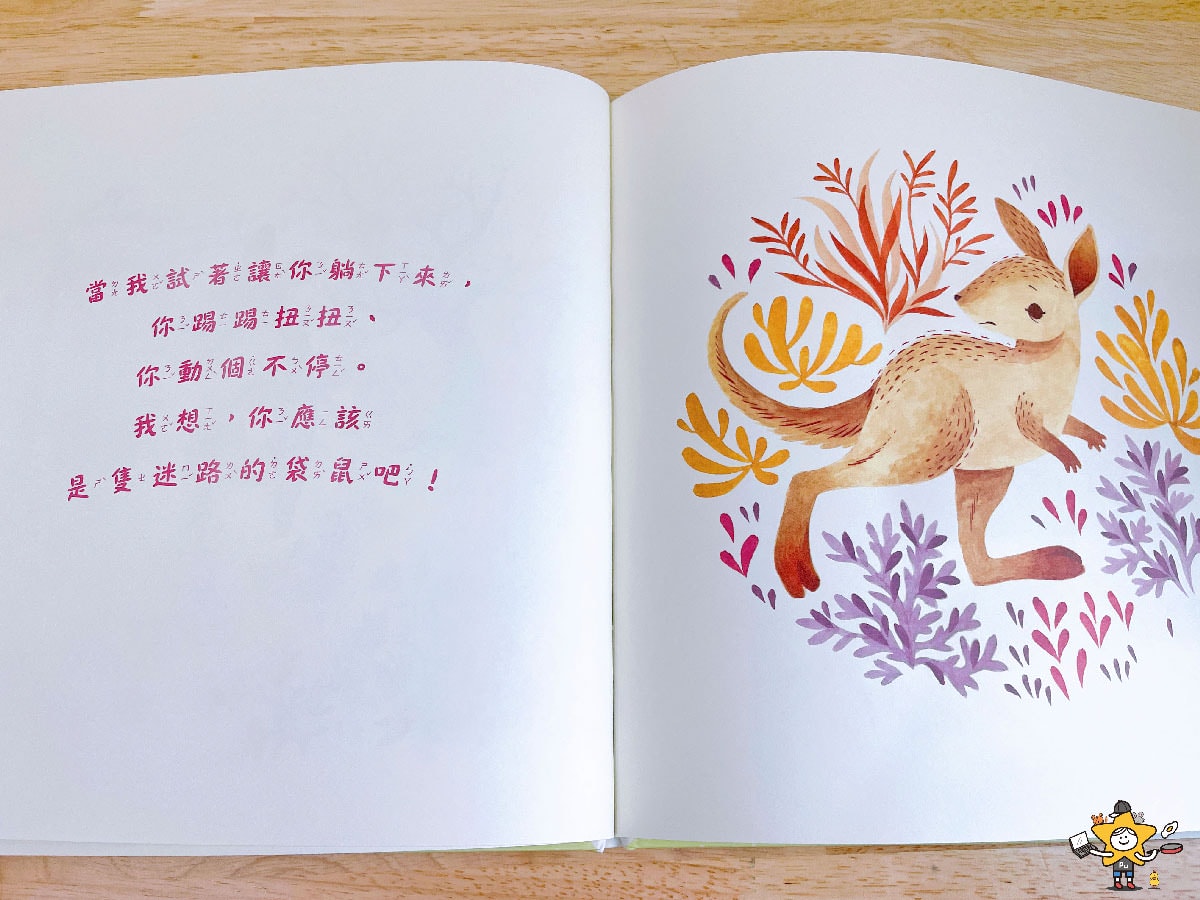 當我試著讓你躺下來，
你踢踢扭扭、
你動個不停。
我想，你應該
是隻迷路的袋鼠吧！